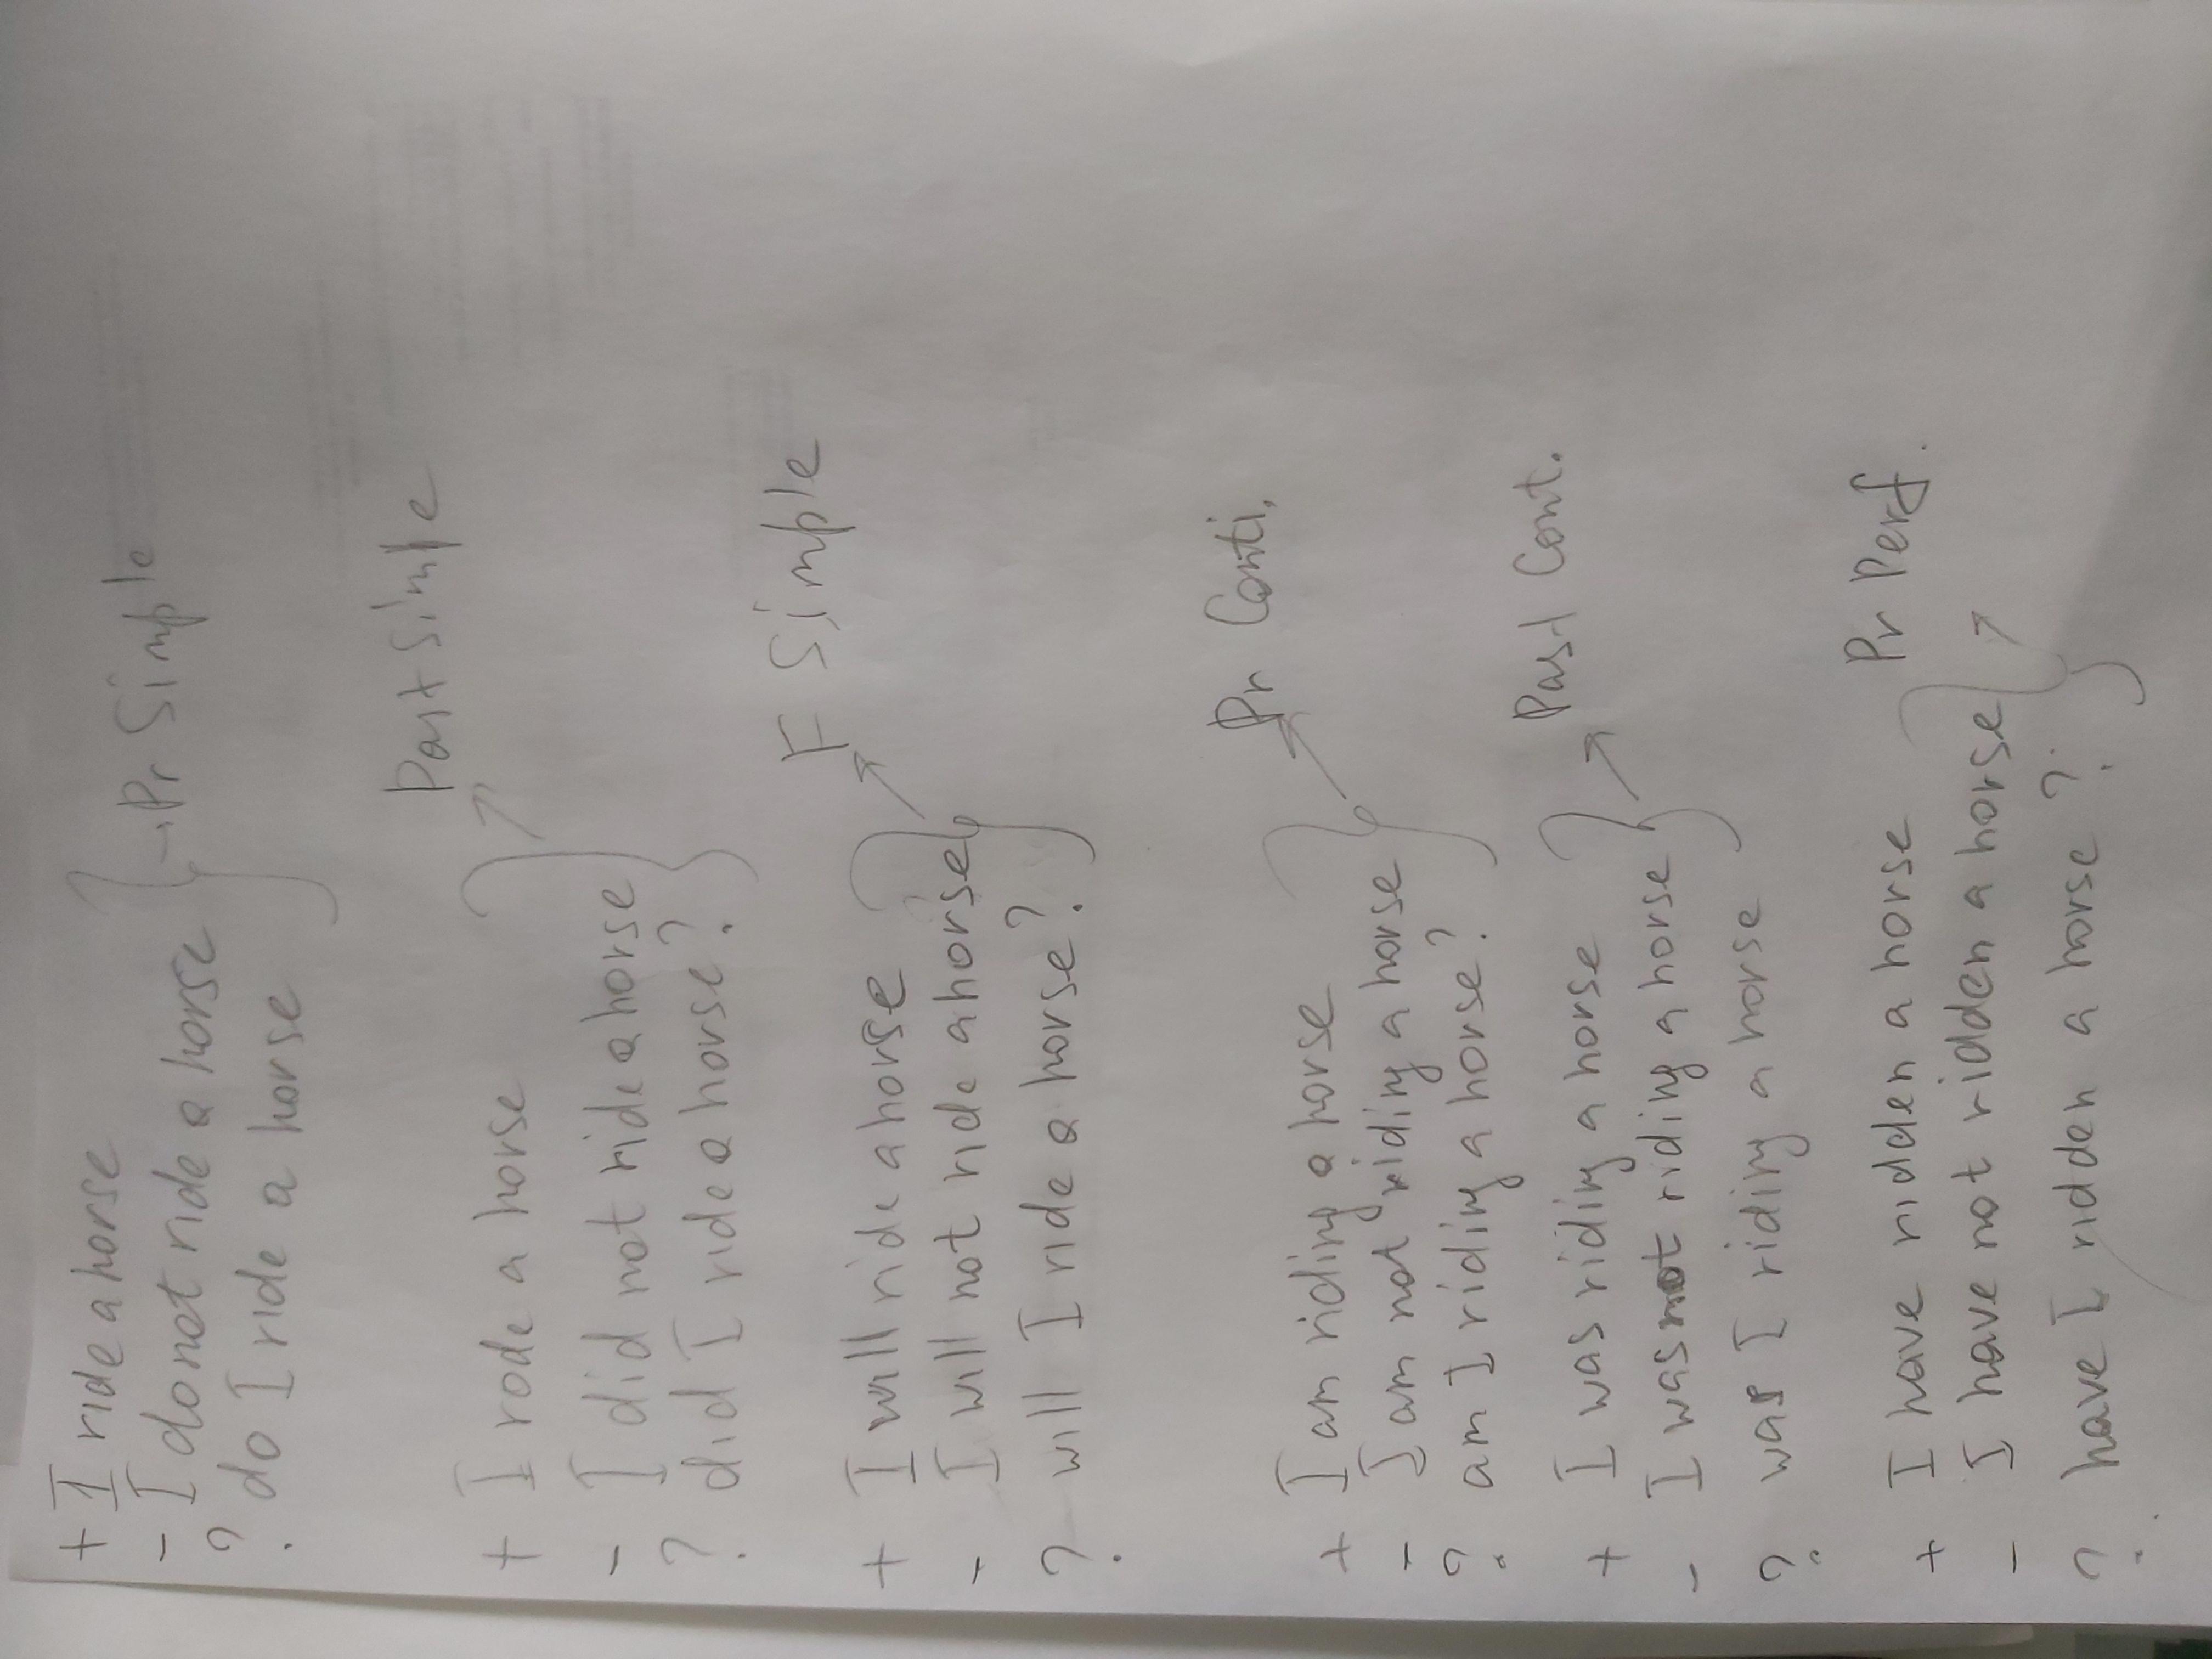 + I ride a horse
- I do not ride a horse
? do I ride a horse
→ Pr Simple
+ I rode a horse
- I did not ride a horse
? did I ride a horse?
Past Simple
+ I will ride a horse
- I will not ride a horse
? will I ride a horse?
F Simple
+ I am riding a horse
- I am not riding a horse
? am I riding a horse?
Pr Conti.
+ I was riding a horse
- I was not riding a horse
? was I riding a horse
Past Cont.
+ I have ridden a horse
- I have not ridden a horse
? have I ridden a horse?
Pr Perf.